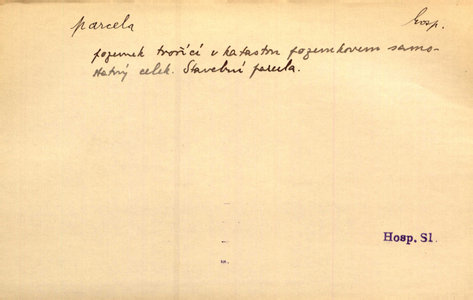 parcela hosp.
pozemek tvořící v katastru pozemkovém samo-
statný celek. Stavební parcela.
Hosp. Sl.